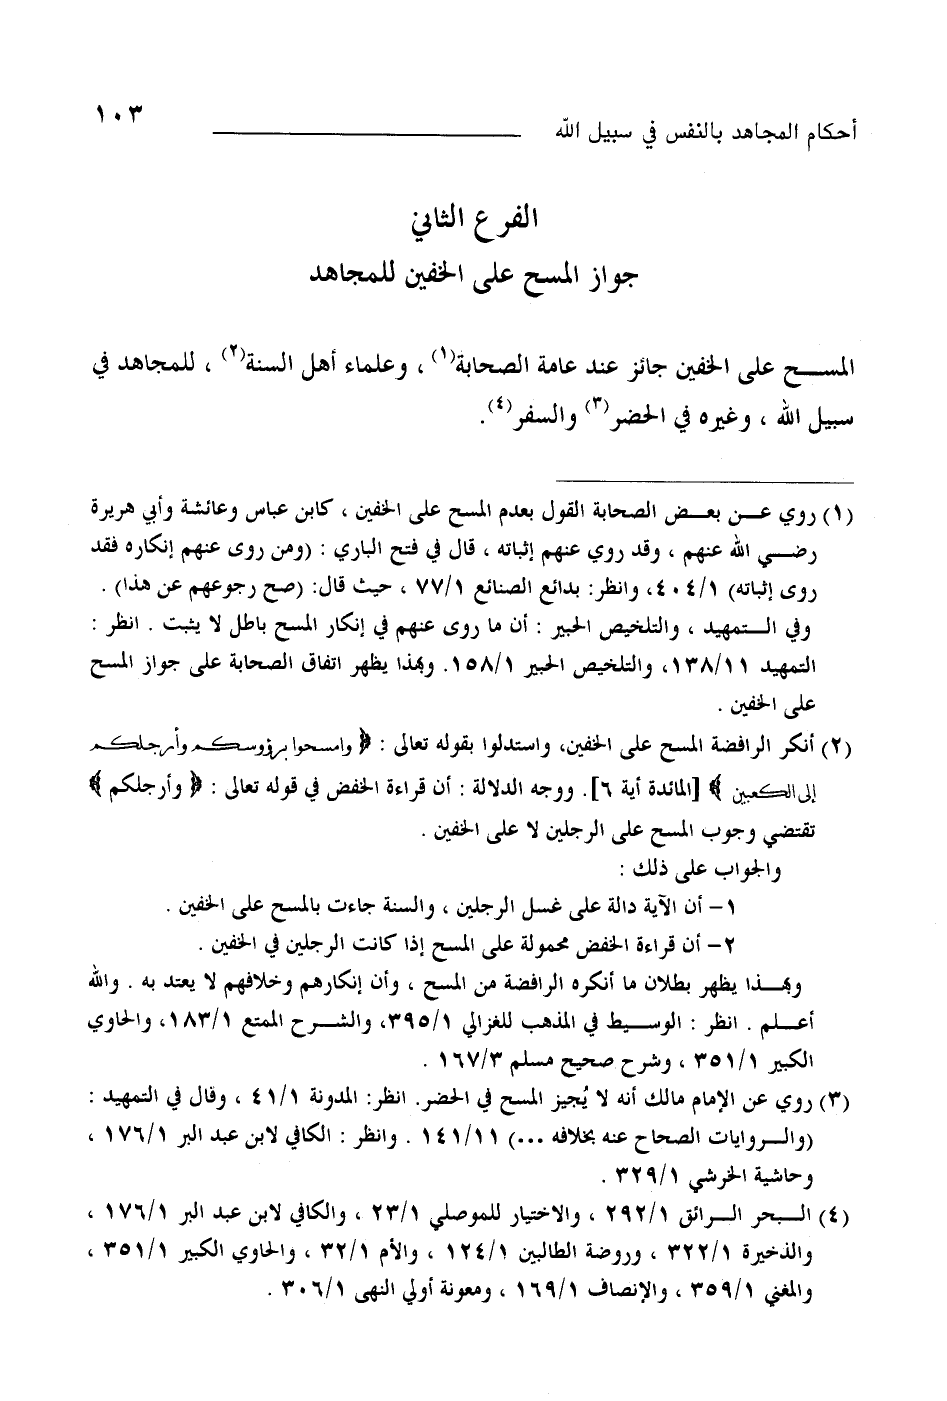 أحكام المجاهد بالنفس في سبيل الله ١٠٣
الفرع الثاني
جواز المسح على الخفين للمجاهد
المسح على الخفين جائز عند عامة الصحابة(١) ، وعلماء أهل السنة(٢) ، للمجاهد في
سبيل الله ، وغيره في الحضر(٣) والسفر(٤).
(١) روي عن بعض الصحابة القول بعدم المسح على الخفين ، كابن عباس وعائشة وأبي هريرة
رضي الله عنهم ، وقد روي عنهم إثباته ، قال في فتح الباري : (ومن روى عنهم إنكاره فقد
روى إثباته) ٤٠٤/١، وانظر: بدائع الصنائع ٧٧/١ ، حيث قال: (صح رجوعهم عن هذا) .
وفي التمهيد ، والتلخيص الحبير : أن ما روى عنهم في إنكار المسح باطل لا يثبت . انظر :
التمهيد ١٣٨/١١، والتلخيص الحبير ١٥٨/١. وبهذا يظهر اتفاق الصحابة على جواز المسح
على الخفين .
(٢) أنكر الرافضة المسح على الخفين، واستدلوا بقوله تعالى : ﴿ وامسحوا برؤوسكم وأرجلكم
إلى الكعبين ﴾ [المائدة أية ٦]. ووجه الدلالة : أن قراءة الخفض في قوله تعالى : ﴿ وأرجلكم ﴾
تقتضي وجوب المسح على الرجلين لا على الخفين .
والجواب على ذلك :
١- أن الآية دالة على غسل الرجلين ، والسنة جاءت بالمسح على الخفين .
٢- أن قراءة الخفض محمولة على المسح إذا كانت الرجلين في الخفين .
وبهذا يظهر بطلان ما أنكره الرافضة من المسح ، وأن إنكارهم وخلافهم لا يعتد به . والله
أعلم . انظر : الوسيط في المذهب للغزالي ٣٩٥/١، والشرح الممتع ١٨٣/١، والحاوي
الكبير ٣٥١/١ ، وشرح صحيح مسلم ١٦٧/٣ .
(٣) روي عن الإمام مالك أنه لا يُجيز المسح في الحضر. انظر: المدونة ٤١/١ ، وقال في التمهيد :
(والروايات الصحاح عنه بخلافه ...) ١٤١/١١ . وانظر : الكافي لابن عبد البر ١٧٦/١ ،
وحاشية الخرشي ٣٢٩/١ .
(٤) البحر الرائق ٢٩٢/١ ، والاختيار للموصلي ٢٣/١ ، والكافي لابن عبد البر ١٧٦/١ ،
والذخيرة ٣٢٢/١ ، وروضة الطالبين ١٢٤/١ ، والأم ٣٢/١ ، والحاوي الكبير ٣٥١/١ ،
والمغني ٣٥٩/١ ، والإنصاف ١٦٩/١ ، ومعونة أولي النهى ٣٠٦/١ .